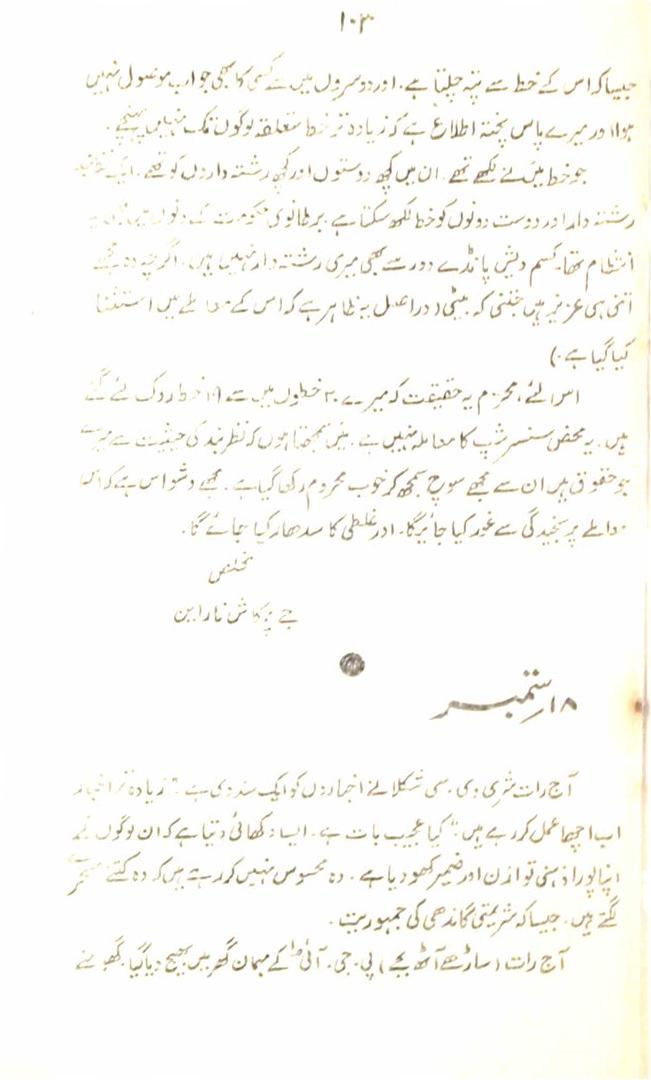 ۱۰۳
جیسا کہ اس کے خط سے پتہ چلتا ہے۔ اور دوسروں میں سے کسی کا بھی جواب موصول نہیں
ہوا اور میرے پاس پختہ اطلاع ہے کہ زیادہ تر خط متعلقہ لوگوں تک نہیں پہنچے۔
جو خط میں نے لکھے تھے۔ ان میں کچھ دوستوں اور کچھ رشتہ داروں کو تھے۔ ایک نظر بند
رشتہ دار اور دوست دونوں کو خط لکھ سکتا ہے۔ برطانوی حکومت کے دنوں میں بھی یہ
انتظام تھا۔ کسم دیش پانڈے دور سے بھی میری رشتہ دار نہیں ہیں۔ اگرچہ وہ مجھے
اتنی ہی عزیز ہیں جتنی کہ بیٹی (دراصل یہ ظاہر ہے کہ اس کے معاملے میں استثنا
کیا گیا ہے۔)
اس لئے، محترم یہ حقیقت کہ میرے ۲۰ خطوں میں سے ۱۹ خط روک لئے گئے
ہیں۔ یہ محض سنسر شپ کا معاملہ نہیں ہے۔ میں سمجھتا ہوں کہ نظر بند کی حیثیت سے میرے
جو حقوق ہیں ان سے مجھے سوچ سمجھ کر خوب محروم رکھا گیا ہے۔ مجھے وشواس ہے کہ اس
معاملے پر سنجیدگی سے غور کیا جائیگا۔ اور غلطی کا سدھار کیا جائے گا۔
مخلص
جے پرکاش نارائن
۱۸ ستمبر
آج رات شری وی۔ سی شکلا نے اخباروں کو ایک سند دی ہے۔ "زیادہ تر اخبار
اب اچھا عمل کر رہے ہیں"۔ کیا عجیب بات ہے۔ ایسا دکھائی دیتا ہے کہ ان لوگوں نے
اپنا پورا ذہنی توازن اور ضمیر کھو دیا ہے۔ وہ محسوس نہیں کر رہے ہیں کہ وہ کتنے مسخرے
لگتے ہیں۔ جیسا کہ شریمتی گاندھی کی جمہوریت۔
آج رات (ساڑھے آٹھ بجے) پی۔ جی۔ آئی کے مہمان گھر میں بھیج دیا گیا۔ گھومنے